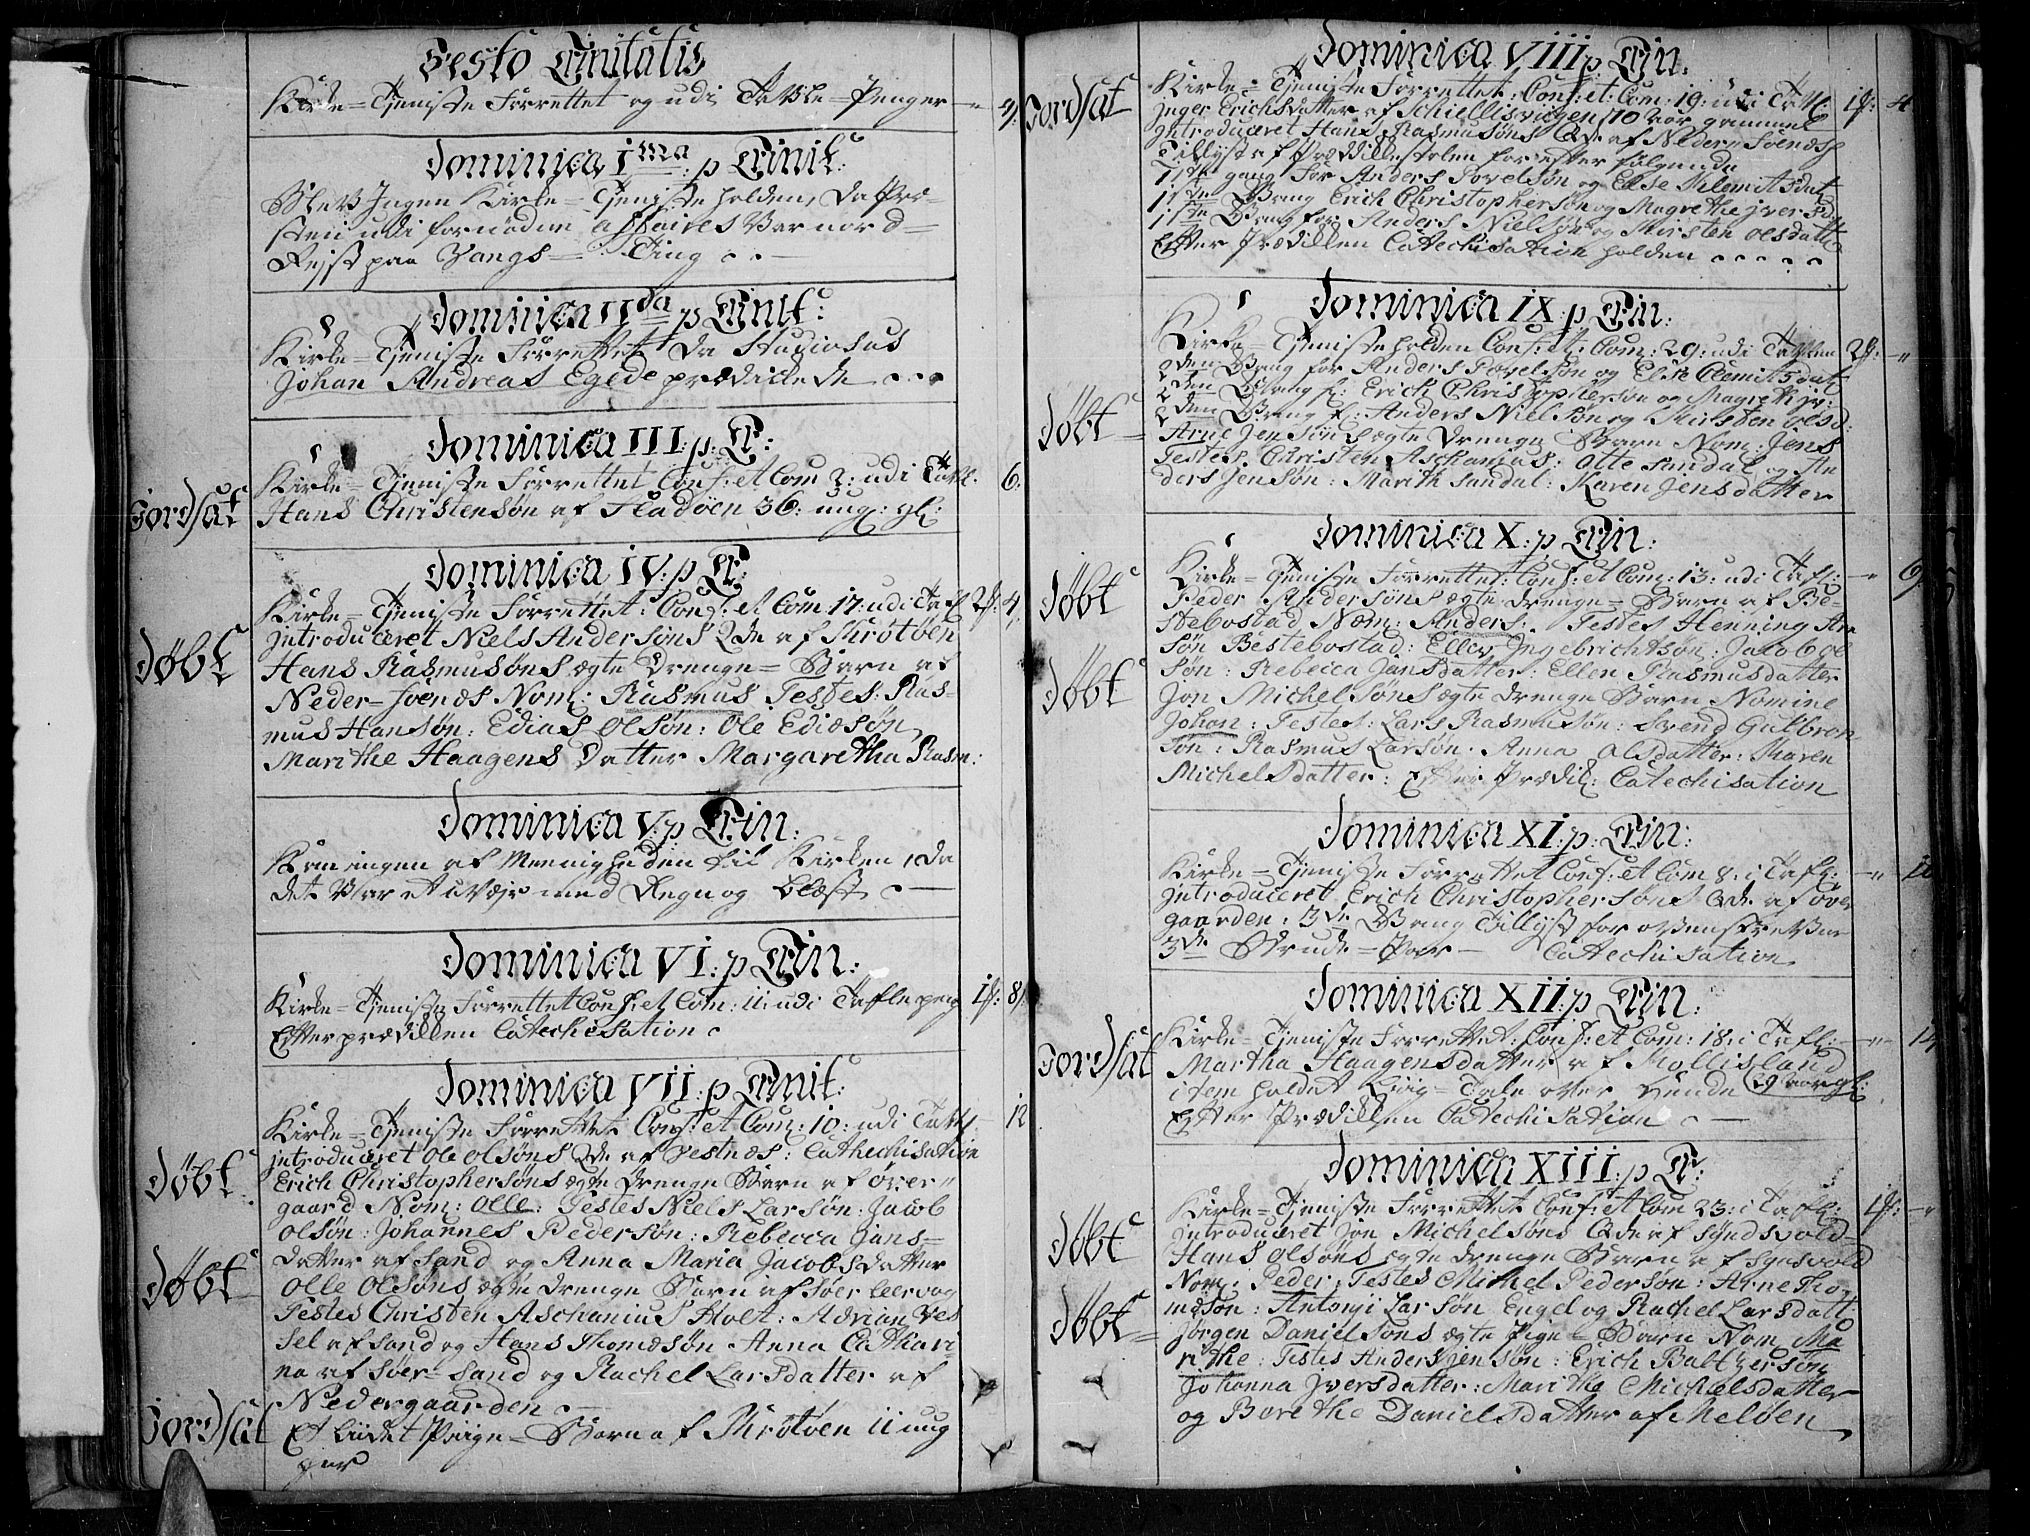 Festo Trinitatis
Kirke=Tjeniste Forrettet og udi Tavle=Penger
Dominica I ma: p Trinit:
Blev Ingen Kirke=Tjeniste holden, da Præ-
sten udi fornøden affaires var nord=
Rejst paa Vangs=Ting
Dominica II da p Trinit:
Kirke=Tjeniste Forrettet da Studiosus
Johan Andreas Egede prædickede
Dominica III: p: T:
Kirke=Tjeniste Forrettet Conf: et Com 2: udi Tavl. 6:
Jordsat Hans Christensøn af Stadøen 36: ug: gl:
Dominica IV: p T:
Kirke=Tjeniste Forrettet: Conf: et Com 17: udi Tafl 2ß: 4
introduceret Niels Andersøns Qde af Skrotøen
Døbt Hans Rasmusøns ægte Drenge=Barn af
Neder=Svenæs Nom: Rasmus Testes: Ras-
mus Hansøn: Edias Olsøn: Ole Ediæsøn
Marithe Haagens Datter Margaretha Rasm:
Dominica V: p Trin:
Kom ingen af Menigheden til Kirken, da
det var et uVejr med Regn og blæst
Dominica VI: p Trin:
Kirke=Tjeniste Forrettet Conf: et Com: 11: udi Tafle peng 1ß: 8
Efter prædicken Catechisation
Dominica VII: p Trinit:
Kirke=Tjeniste Forrettet Conf: et Com: 10: udi Tavl. 12
introduceret Ole Olsøns Qde af Vestnæs: Cathechisation
Døbt Erich Christophersøns ægte Drenge Barn af Över=
gaard Nom: Olle: Testes Niels Larsøn: Jacob
Olsøn: Johannes Pedersøn: Rebecca Jans=
datter af Sand og Anna Maria Jacobsdatter
Døbt Olle Olsøns ægte Drenge Barn af Søer leervog
Testes Christen Aschanius Holt: Adrian Ves
sel af Sand og Hans Thomæsøn Anna Cathari-
na af Søer=Sand og Rachel Larsdatter af
Nedergaarden
Jordsat Et lidet Pige=Barn af Skrotøen 11 uug
ger
Dominica VIII p Trin:
Kirke=Tjeniste Forrettet: Conf: et: Com: 19: udi Tafl: 1ß: 4
Jordsat Inger Erichsdatter af Schiellisvigen 70 aar gammel
Introduceret Hans Rasmusøns Qde af Neder=Svenæs
Tillyst af Prædickestolen for efter følgende
1ste gang for Anders Povelsøn og Else Klemitsdat
1ste Gang Erich Christophersøn og Magrethe Jversd:
1ste Gang for Anders Nielsøn og Kirsten Olsdatt
Efter Prædicken Catechisation holden
Dominica IX: p Trin:
Kirke=Tjeniste holden Conf: et: Com: 29: udi Taflen 2ß:
2den Gang for Anders Povelsøn og Else Clemitsdat
2den Gang f: Erich Christophersøn og Magrethe Jv:
2den Gang f: Anders Nielsøn og Kirsten Olsd:
Døbt Arne Jensøns ægte Drenge Barn Nom: Jens
Testes Christen Aschanius: Otte Sandal og An
ders Jensøn: Marith Sandal: Karen Jensdatter
Dominica X: p Trin:
Kirke=Tjeniste Forrettet: Conf: et Com: 13: udi Tafl: 6
Døbt Peder Andersøns ægte Drenge=Barn af Be-
stebostad Nom: Anders: Testes Henning An
søn Bestebostad: Ellev Ingebrichtsøn: Jacob ol
søn: Rebecca Jansdatter: Ellen Rasmusdatter
Døbt Jon Michelsøns ægte Drenge Barn Nomine
Johan: Testes: Lars Rasmusøn: Svend Gulbran
søn: Rasmus Larsøn: Anna Olsdatter: Maren
Michelsdatter: Efter Prædik: Catechisation
Dominica XI: p: Trin:
Kirke=Tjeniste Forrettet Conf: et Com 8: i Tafl:
introduceret Erich Christophersøns Qde af över
gaarden: 3de Gang Tillyst for ovenskrevne
3de Brude=Par= Catechisation
Dominica XII: p Trin:
Kirke=Tjeniste Forrettet: Conf: et Com: 18: i Tafl:
Jordsat Martha Haagensdatter af Mollisland
item holdet Liig=Tale over hende 29 aar gl:
Efter Prædicken Catechisation
Dominica XIII: p T:
Kirke=Tjeniste Forrettet Conf: et Com 23: i Tafl: 1ß:
introduceret Jon Michelsøns Qde af Syndsvold
Døbt Hans Olsøns ægte Drenge Barn af Synsvold
Nom: Peder: Testes Michel Pedersøn: Arne Tho-
mæsøn: Antoni Larsøn Engel og Rachel Larsdatt
Døbt Jørgen Danielsøns ægte Pige=Barn Nom Ma
rithe: Testes Anders Jensøn: Erich Baltzersøn
Johanna Jversdatter: Marithe Michelsdatter
og Berethe Danielsdatter af Meløen